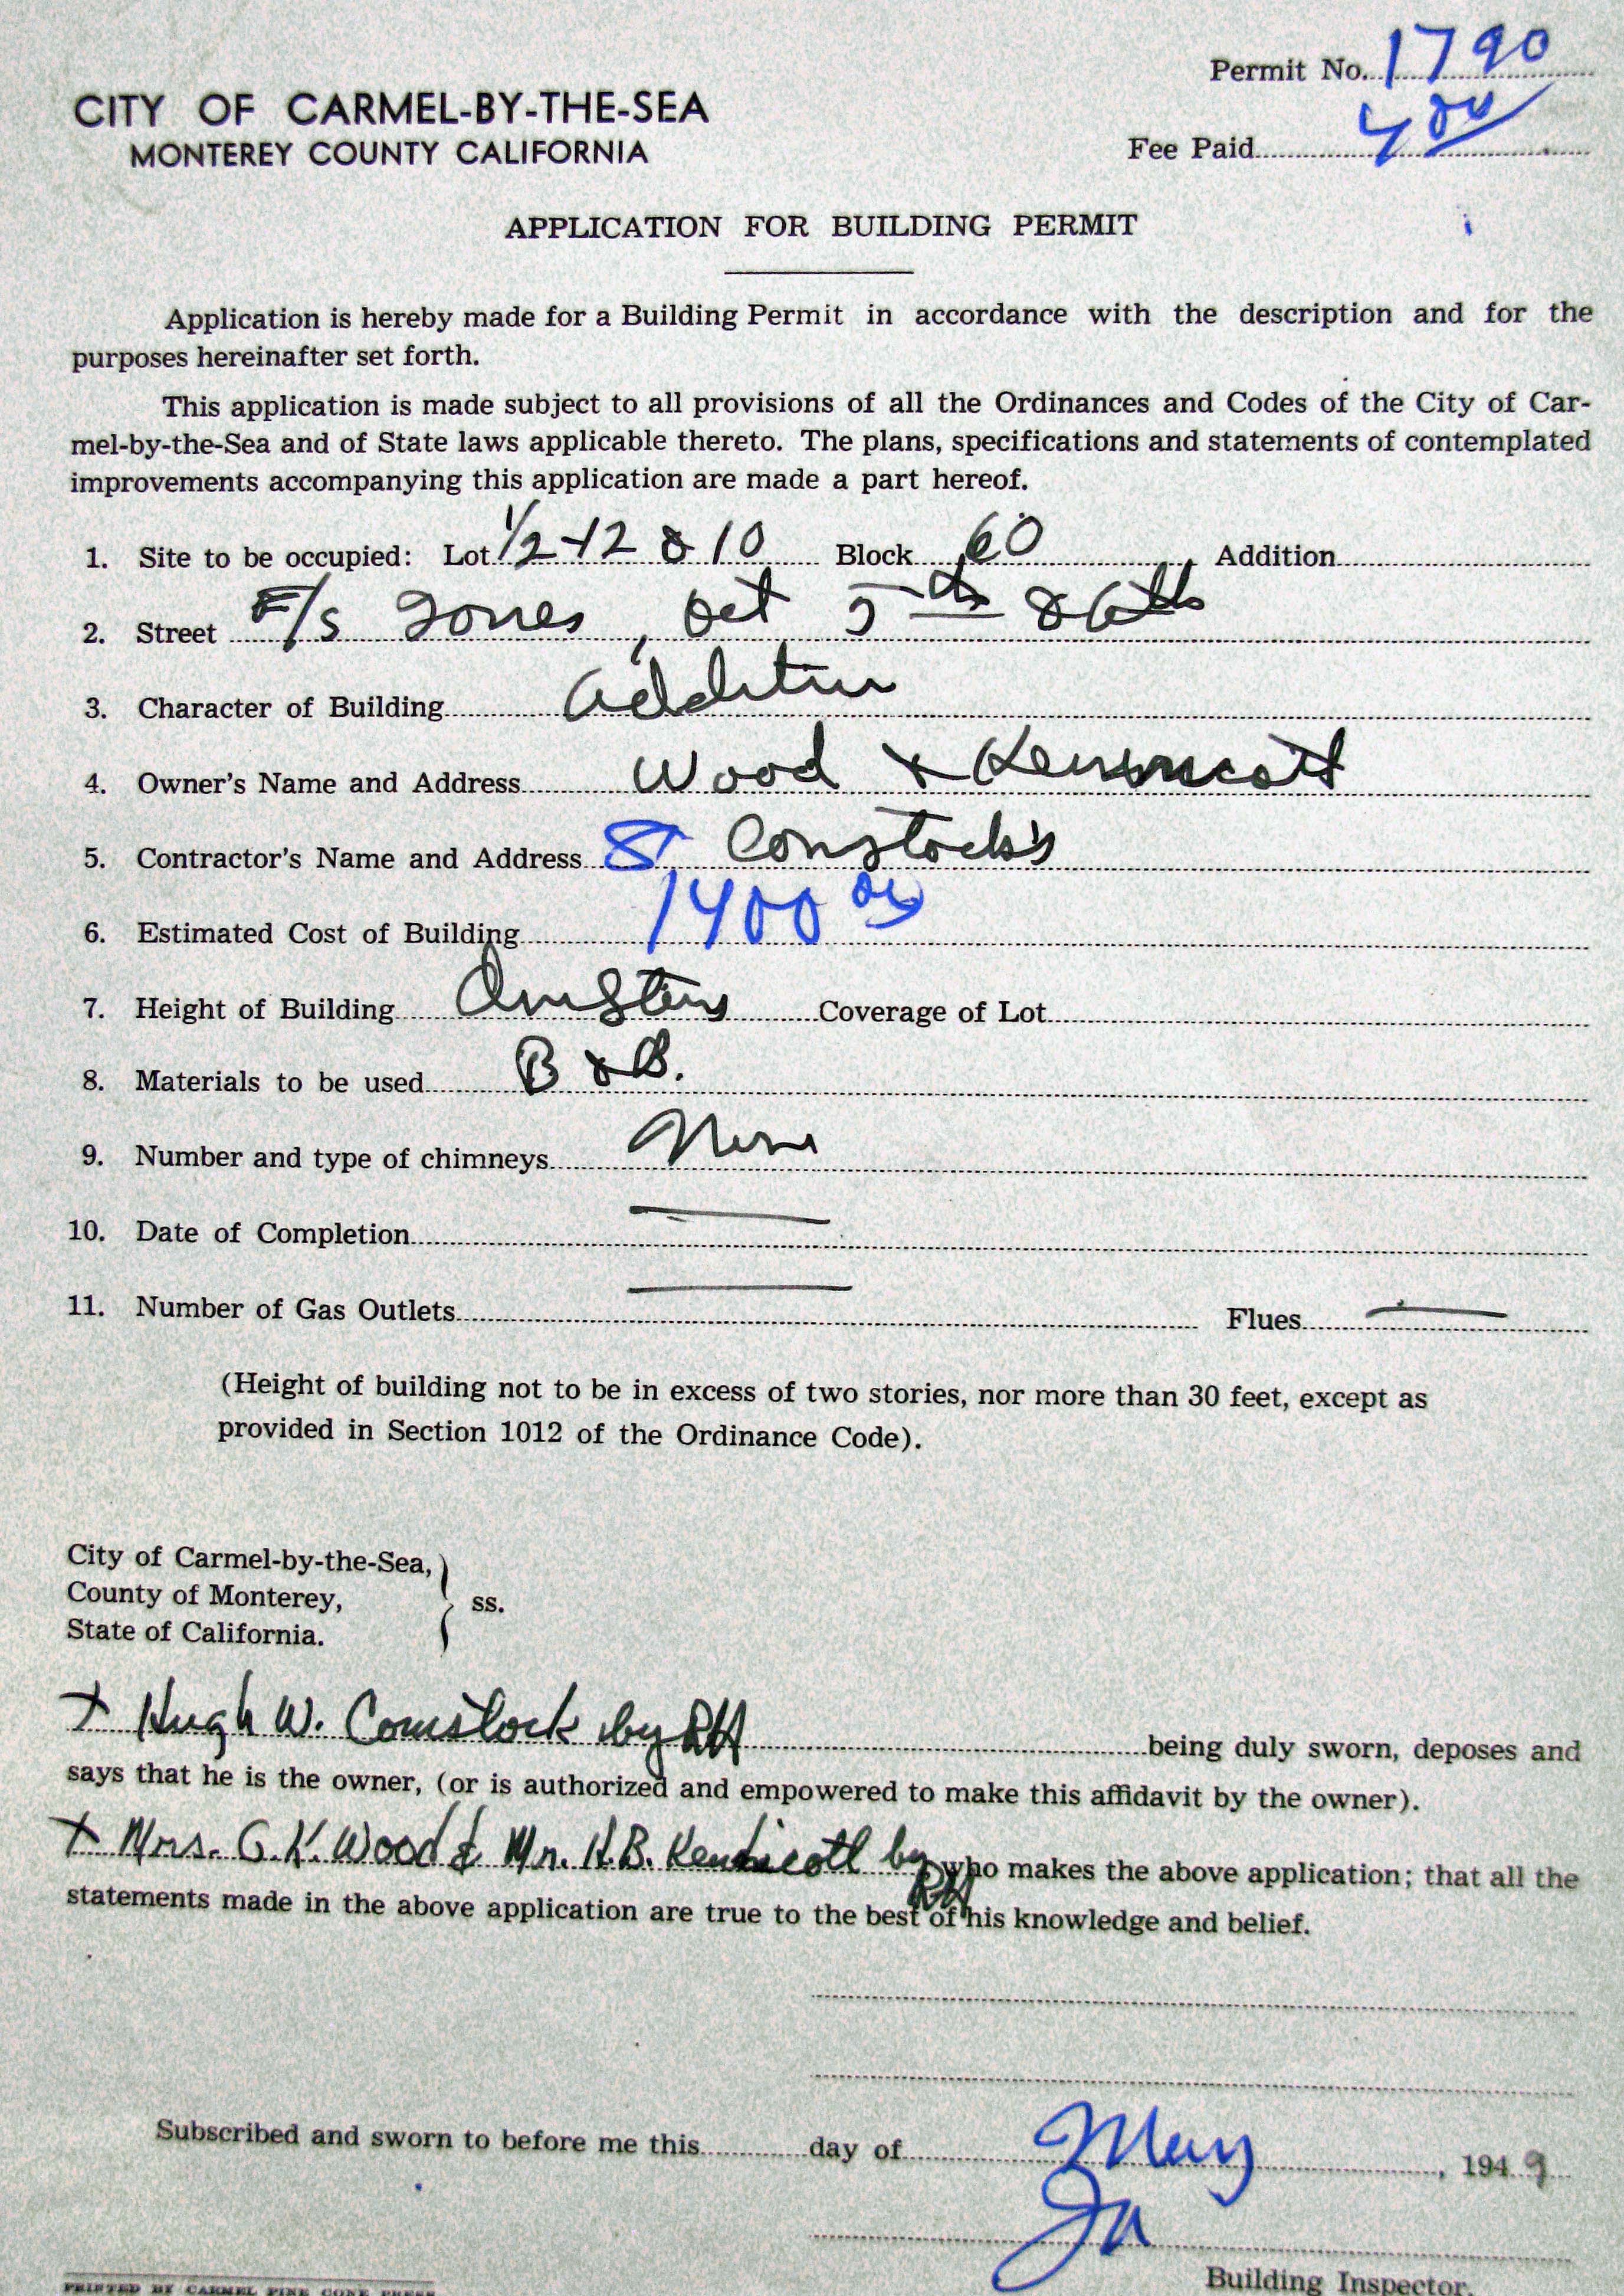 Permit No. 1790
CITY OF CARMEL-BY-THE-SEA
MONTEREY COUNTY CALIFORNIA
Fee Paid 4 00
APPLICATION FOR BUILDING PERMIT
Application is hereby made for a Building Permit in accordance with the description and for the
purposes hereinafter set forth.
This application is made subject to all provisions of all the Ordinances and Codes of the City of Car-
mel-by-the-Sea and of State laws applicable thereto. The plans, specifications and statements of contemplated
improvements accompanying this application are made a part hereof.
1. Site to be occupied: Lot 1/2-12 & 10 Block 60 Addition
2. Street E/s Torres, bet 5th & 6th
3. Character of Building Addition
4. Owner's Name and Address Wood &
5. Contractor's Name and Address Comstock's
6. Estimated Cost of Building 1400 00
7. Height of Building One Story Coverage of Lot
8. Materials to be used B & B.
9. Number and type of chimneys None
10. Date of Completion —
11. Number of Gas Outlets — Flues —
(Height of building not to be in excess of two stories, nor more than 30 feet, except as
provided in Section 1012 of the Ordinance Code).
City of Carmel-by-the-Sea,
County of Monterey,
State of California.
ss.
x Hugh W. Comstock by RH being duly sworn, deposes and
says that he is the owner, (or is authorized and empowered to make this affidavit by the owner).
x Mrs. G. K. Wood & Mr. H.B. by RH who makes the above application; that all the
statements made in the above application are true to the best of his knowledge and belief.
Subscribed and sworn to before me this day of May, 1949
Building Inspector.
PRINTED BY CARMEL PINE CONE PRESS